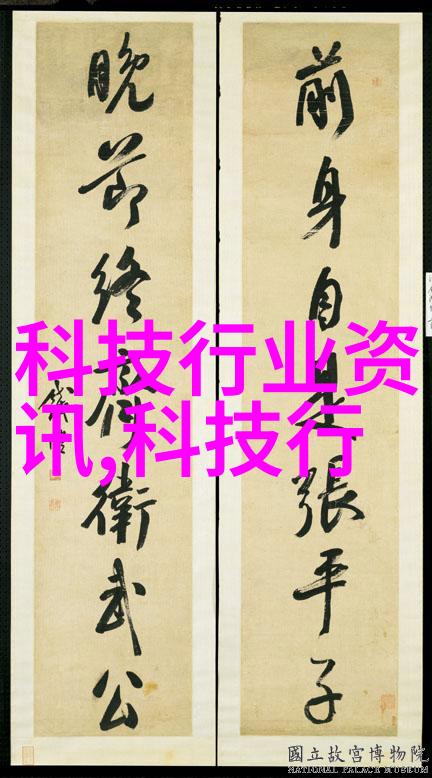 前身自是張平子
晚節終衛武公
科技行业资
讯,科技行
國立故宮博物院
NATIONAL PALACE MUSEUM